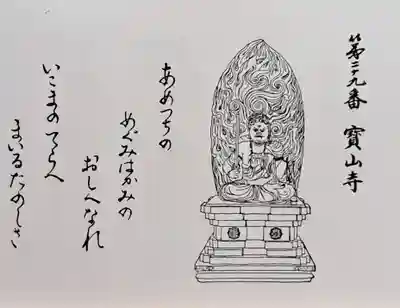 第二十九番 寶山寺
あめつちの
めぐみはかみの
おしへなれ
いこまのてらへ
まいるたのしさ